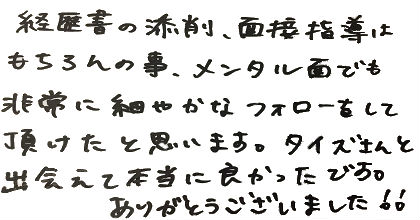 経歴書の添削、面接指導は
もちろんの事、メンタル面でも
非常に細やかなフォローをして
頂けたと思います。タイズさんと
出会えて本当に良かったです。
ありがとうございました!!